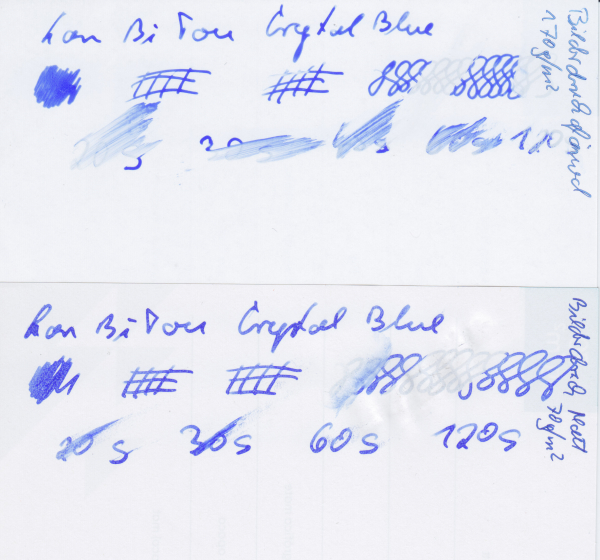 Lan Bi Tou Crystal Blue
Bilderdruck glänzend
170g/m²
s 30 s
Lan Bi Tou Crystal Blue
Bilderdruck Matt
70g/m²
20 s 30s 60s 120s